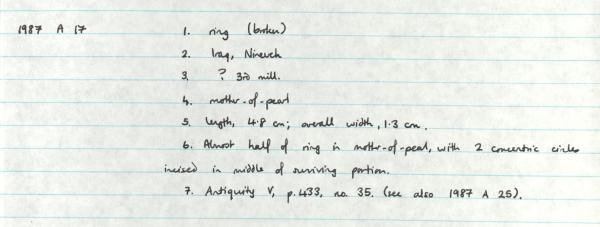 1987 A 17 1. ring (broken)
2. Iraq, Nineveh
3. ? 3rd mill.
4. mother-of-pearl
5. length, 4.8 cm; overall width, 1.3 cm.
6. Almost half of ring in mother-of-pearl, with 2 concentric circles
incised in middle of surviving portion.
7. Antiquity V, p. 433, no. 35. (see also 1987 A 25).